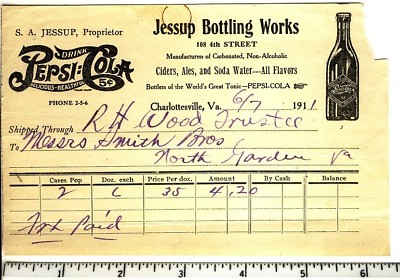 S. A. JESSUP, Proprietor
Jessup Bottling Works
108 4th STREET
Manufacturers of Carbonated, Non-Alcoholic
Ciders, Ales, and Soda Water---All Flavors
Bottlers of the World's Great Tonic—PEPSI-COLA
DRINK
PEPSI-COLA
DELICIOUS-HEALTHFUL
5¢
PHONE 2-5-6
Charlottesville, Va. 6/7 1911
Shipped Through R H Wood Trustee
To Messrs Smith Bros
North Garden Va
Cases Pop Doz. each Price Per doz. Amount By Cash Balance
2 6 35 4,20
Frt Paid